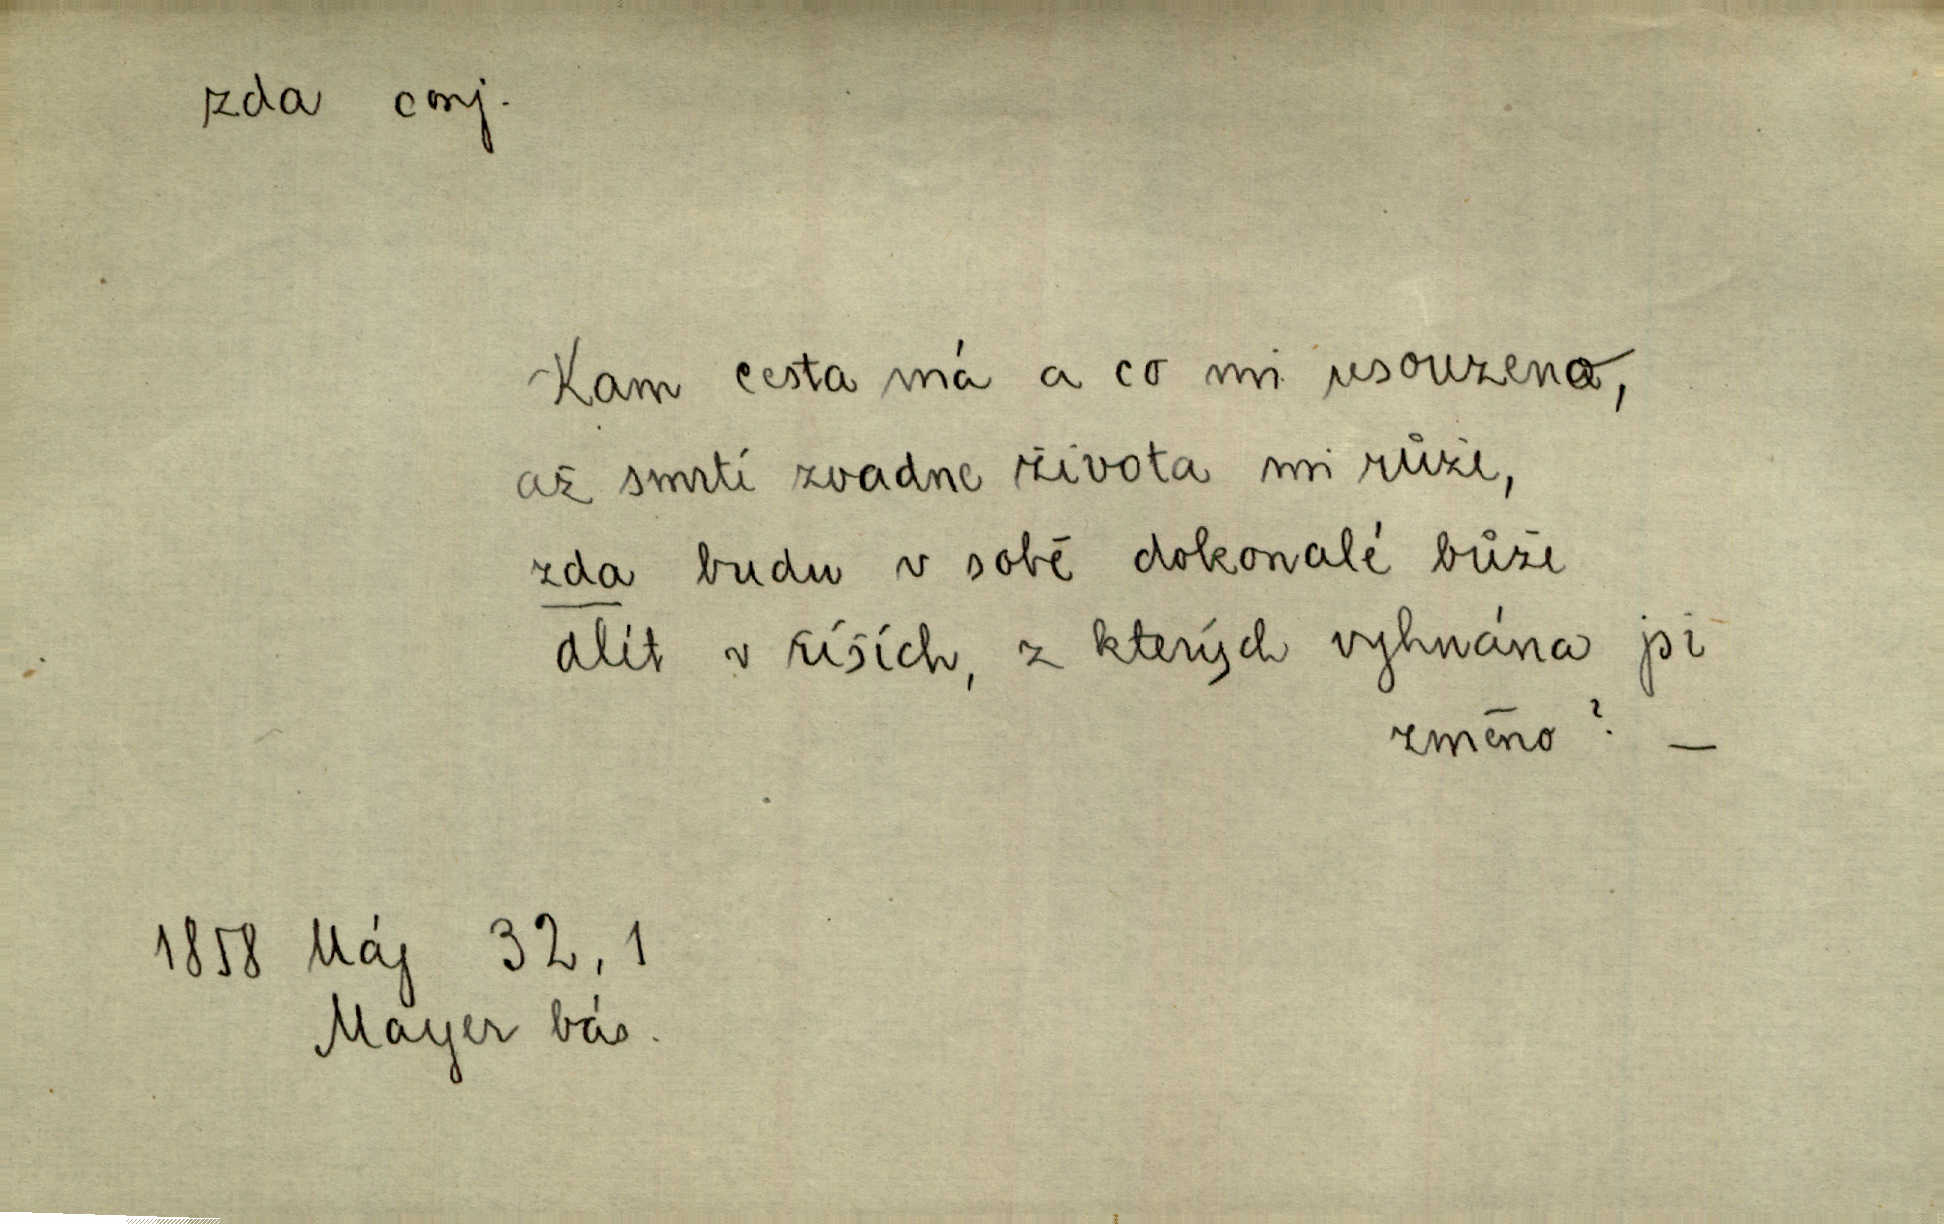 zda conj.
Kam cesta má a co mi usouzeno,
až smrtí zvadne života mi růže,
zda budu v sobě dokonalé bůže
dlít v říších, z kterých vyhnána psi
změno? —
1858 Máj 32, 1
Mayer bás.